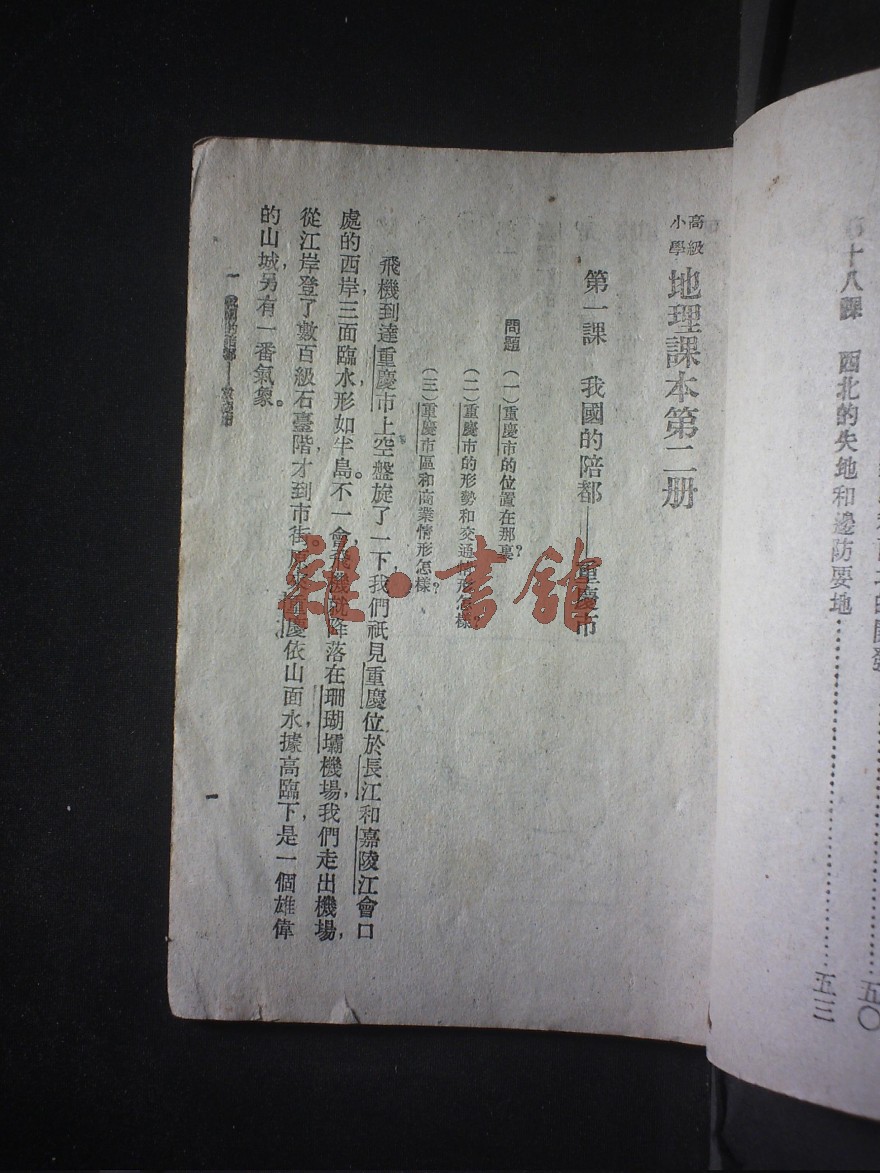 第十八課　西北的失地和邊防要地……五三
五〇
高級小學 地理課本第二册
第一課　我國的陪都——重慶市
問題　(一)重慶市的位置在那裏?
(二)重慶市的形勢和交通情形怎樣?
(三)重慶市區和商業情形怎樣?
飛機到達重慶市上空盤旋了一下,我們祇見重慶位於長江和嘉陵江會口
處的西岸,三面臨水,形如半島。不一會,飛機就降落在珊瑚壩機場,我們走出機場,
從江岸登了數百級石臺階,才到市街。原來重慶依山面水,據高臨下,是一個雄偉
的山城,另有一番氣象。
一　我國的陪都——重慶市
一
雜·書館